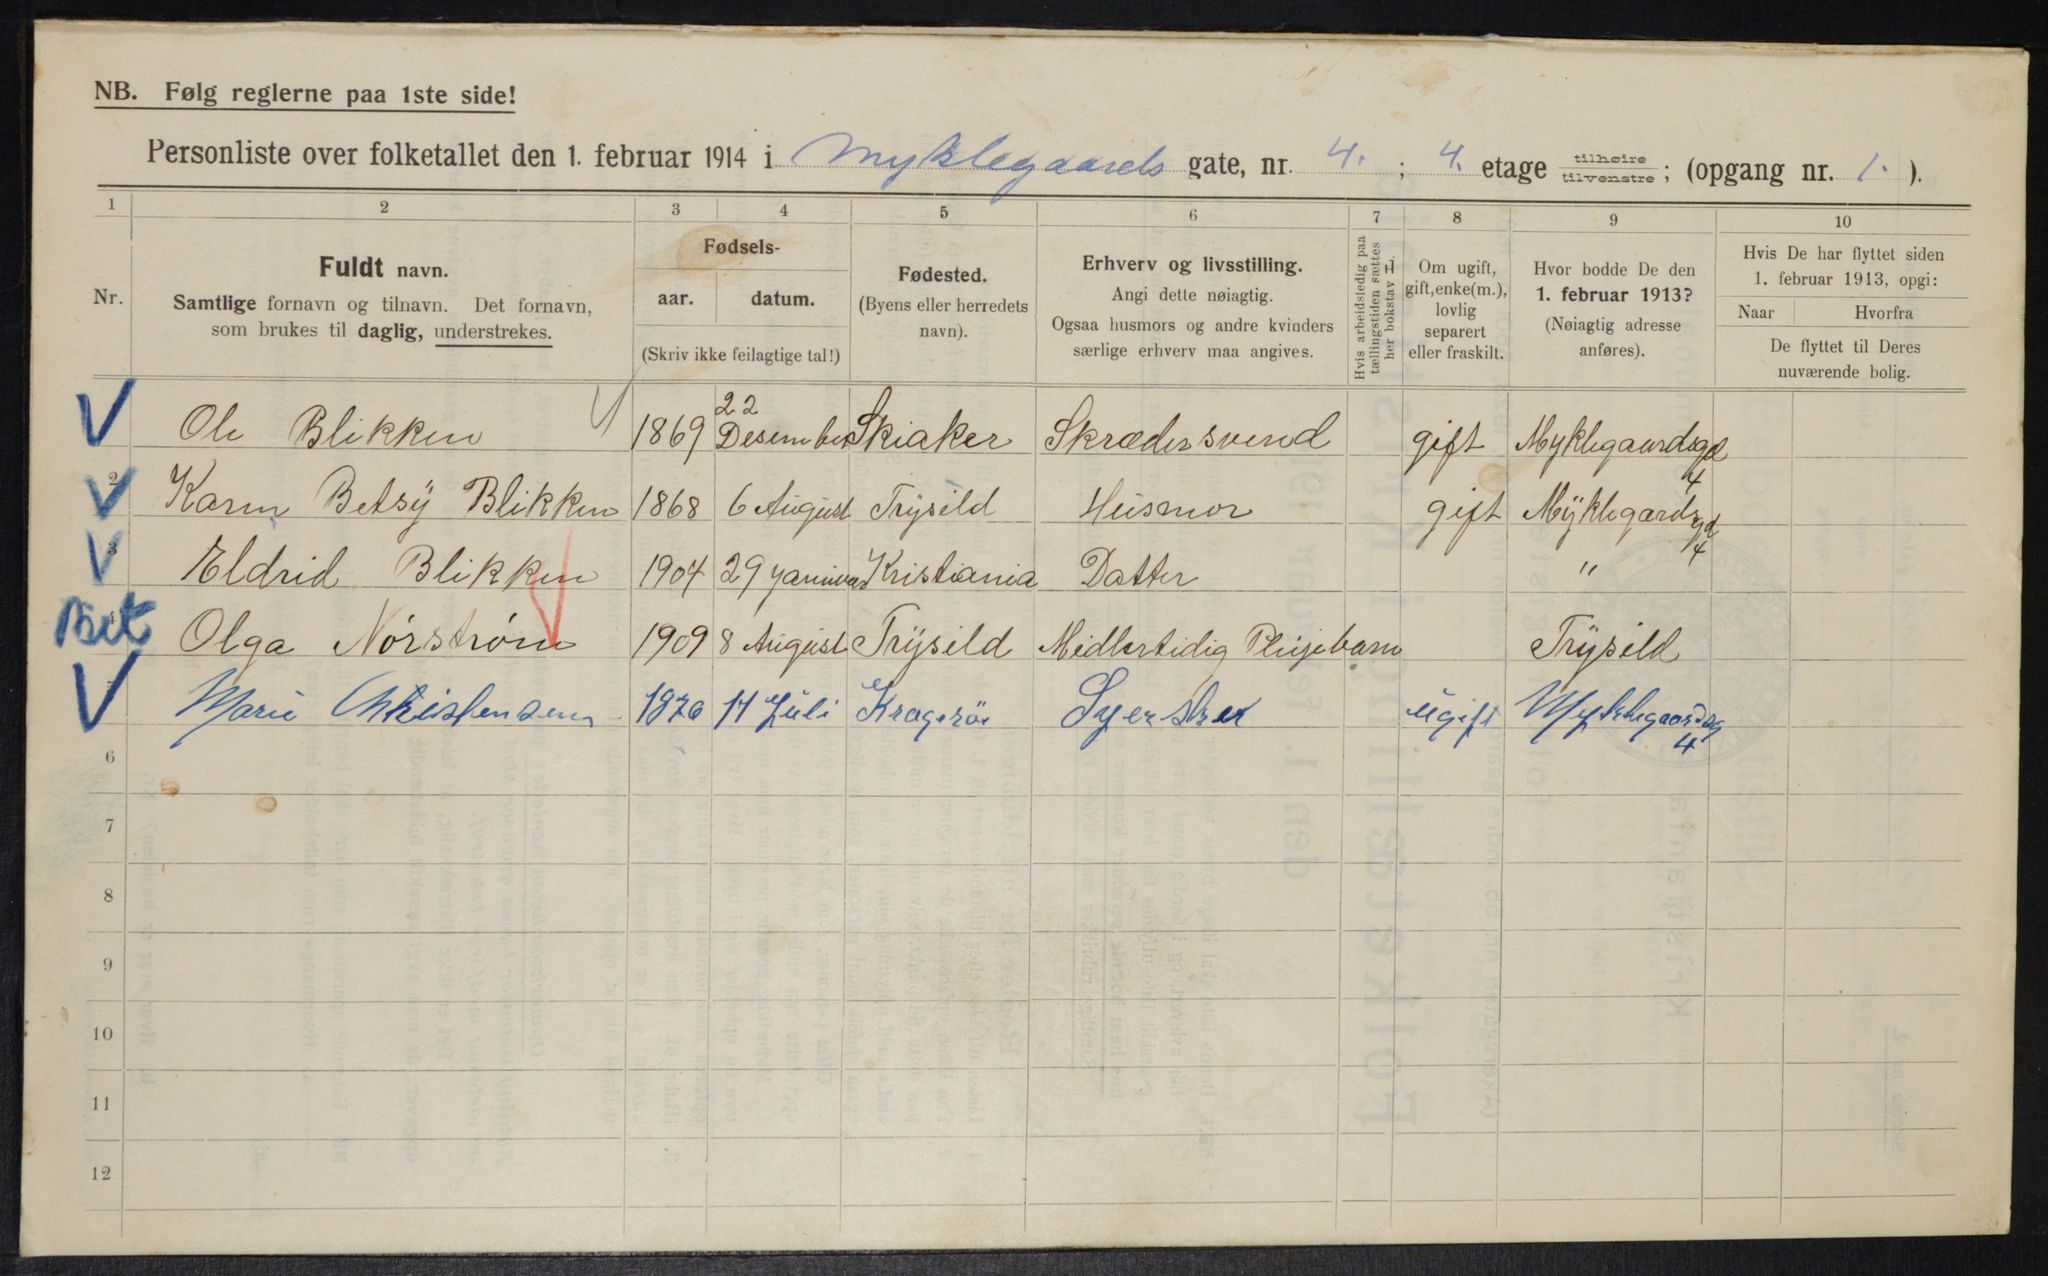 NB. Følg reglerne paa 1ste side!
Personliste over folketallet den 1. februar 1914 i Myklegaards gate, nr. 4. ; 4. etage tilhøire tilvenstre; (opgang nr. 1. ).
1 2 3 4 5 6 7 8 9 10
Nr.
Fuldt navn.
Samtlige fornavn og tilnavn. Det fornavn,
som brukes til daglig, understrekes.
Fødsels-
aar. datum.
(Skriv ikke feilagtige tal!)
Fødested.
(Byens eller herredets
navn).
Erhverv og livsstilling.
Angi dette nøiagtig.
Ogsaa husmors og andre kvinders
særlige erhverv maa angives.
Hvis arbeidsledig paa
tællingstiden sættes
her bokstav L.
Om ugift,
gift, enke(m.),
lovlig
separert
eller fraskilt.
Hvor bodde De den
1. februar 1913?
(Nøiagtig adresse
anføres).
Hvis De har flyttet siden
1. februar 1913, opgi:
Naar Hvorfra
De flyttet til Deres
nuværende bolig.
Ole Blikken 1869 22 Desember Skiaker Skrædersvend gift Myklegaardsgd 4
2 Karen Betsÿ Blikken 1868 6 August Trÿsild Husmor gift Mÿklegardsgd 4
3 Eldrid Blikken 1904 29 Januar Kristiania Datter "
Bet 4 Olga Nórstróm 1909 8 August Trÿsild Midlertidig Pleijebarn Trÿsild
Marie Christensen 1876 14 Juli Kragerö Syerske ugift Myklegaardsg 4
6
7
8
9
10
11
12